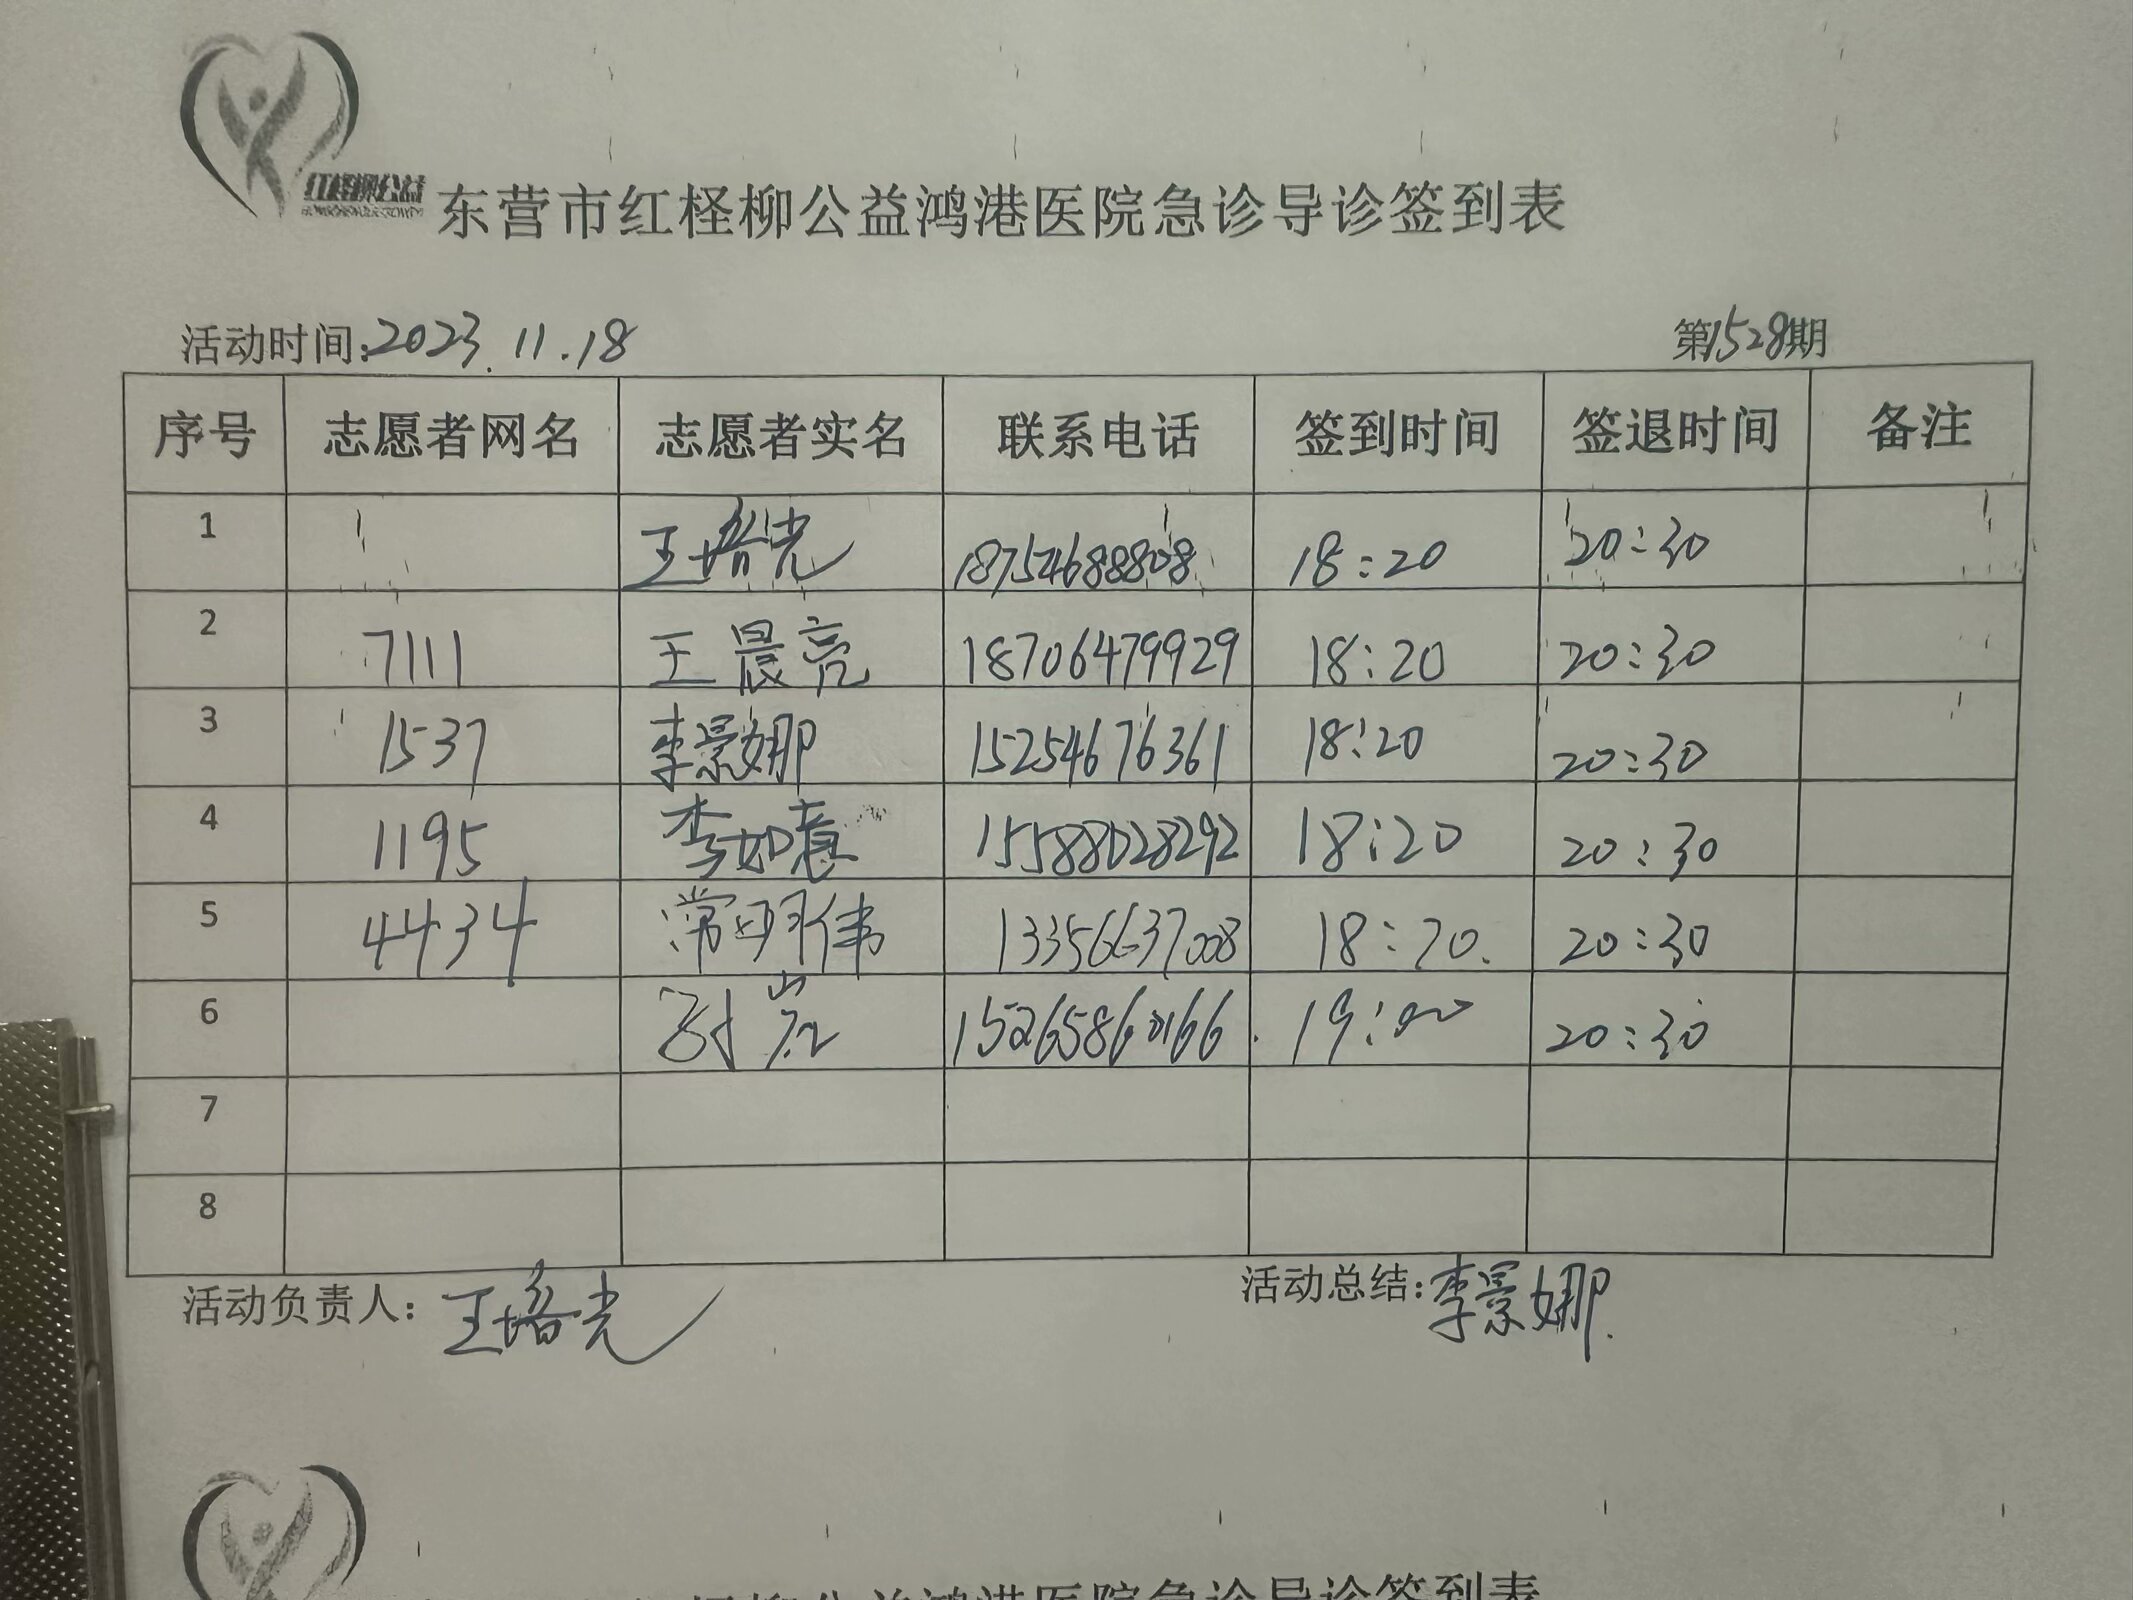 红柽柳公益
东营市红柽柳公益鸿港医院急诊导诊签到表
活动时间:2023.11.18 第1528期
序号 志愿者网名 志愿者实名 联系电话 签到时间 签退时间 备注
1 王培光 18754688808 18:20 20:30
2 7111 王晨亮 18706479929 18:20 20:30
3 1537 李景娜 15254676361 18:20 20:30
4 1195 李如意 15588028292 18:20 20:30
5 4434 常明伟 13356637008 18:20. 20:30
6 15265860166. 19:00 20:30
7
8
活动负责人: 王培光 活动总结: 李景娜.
柽柳公益鸿港医院急诊导诊签到表